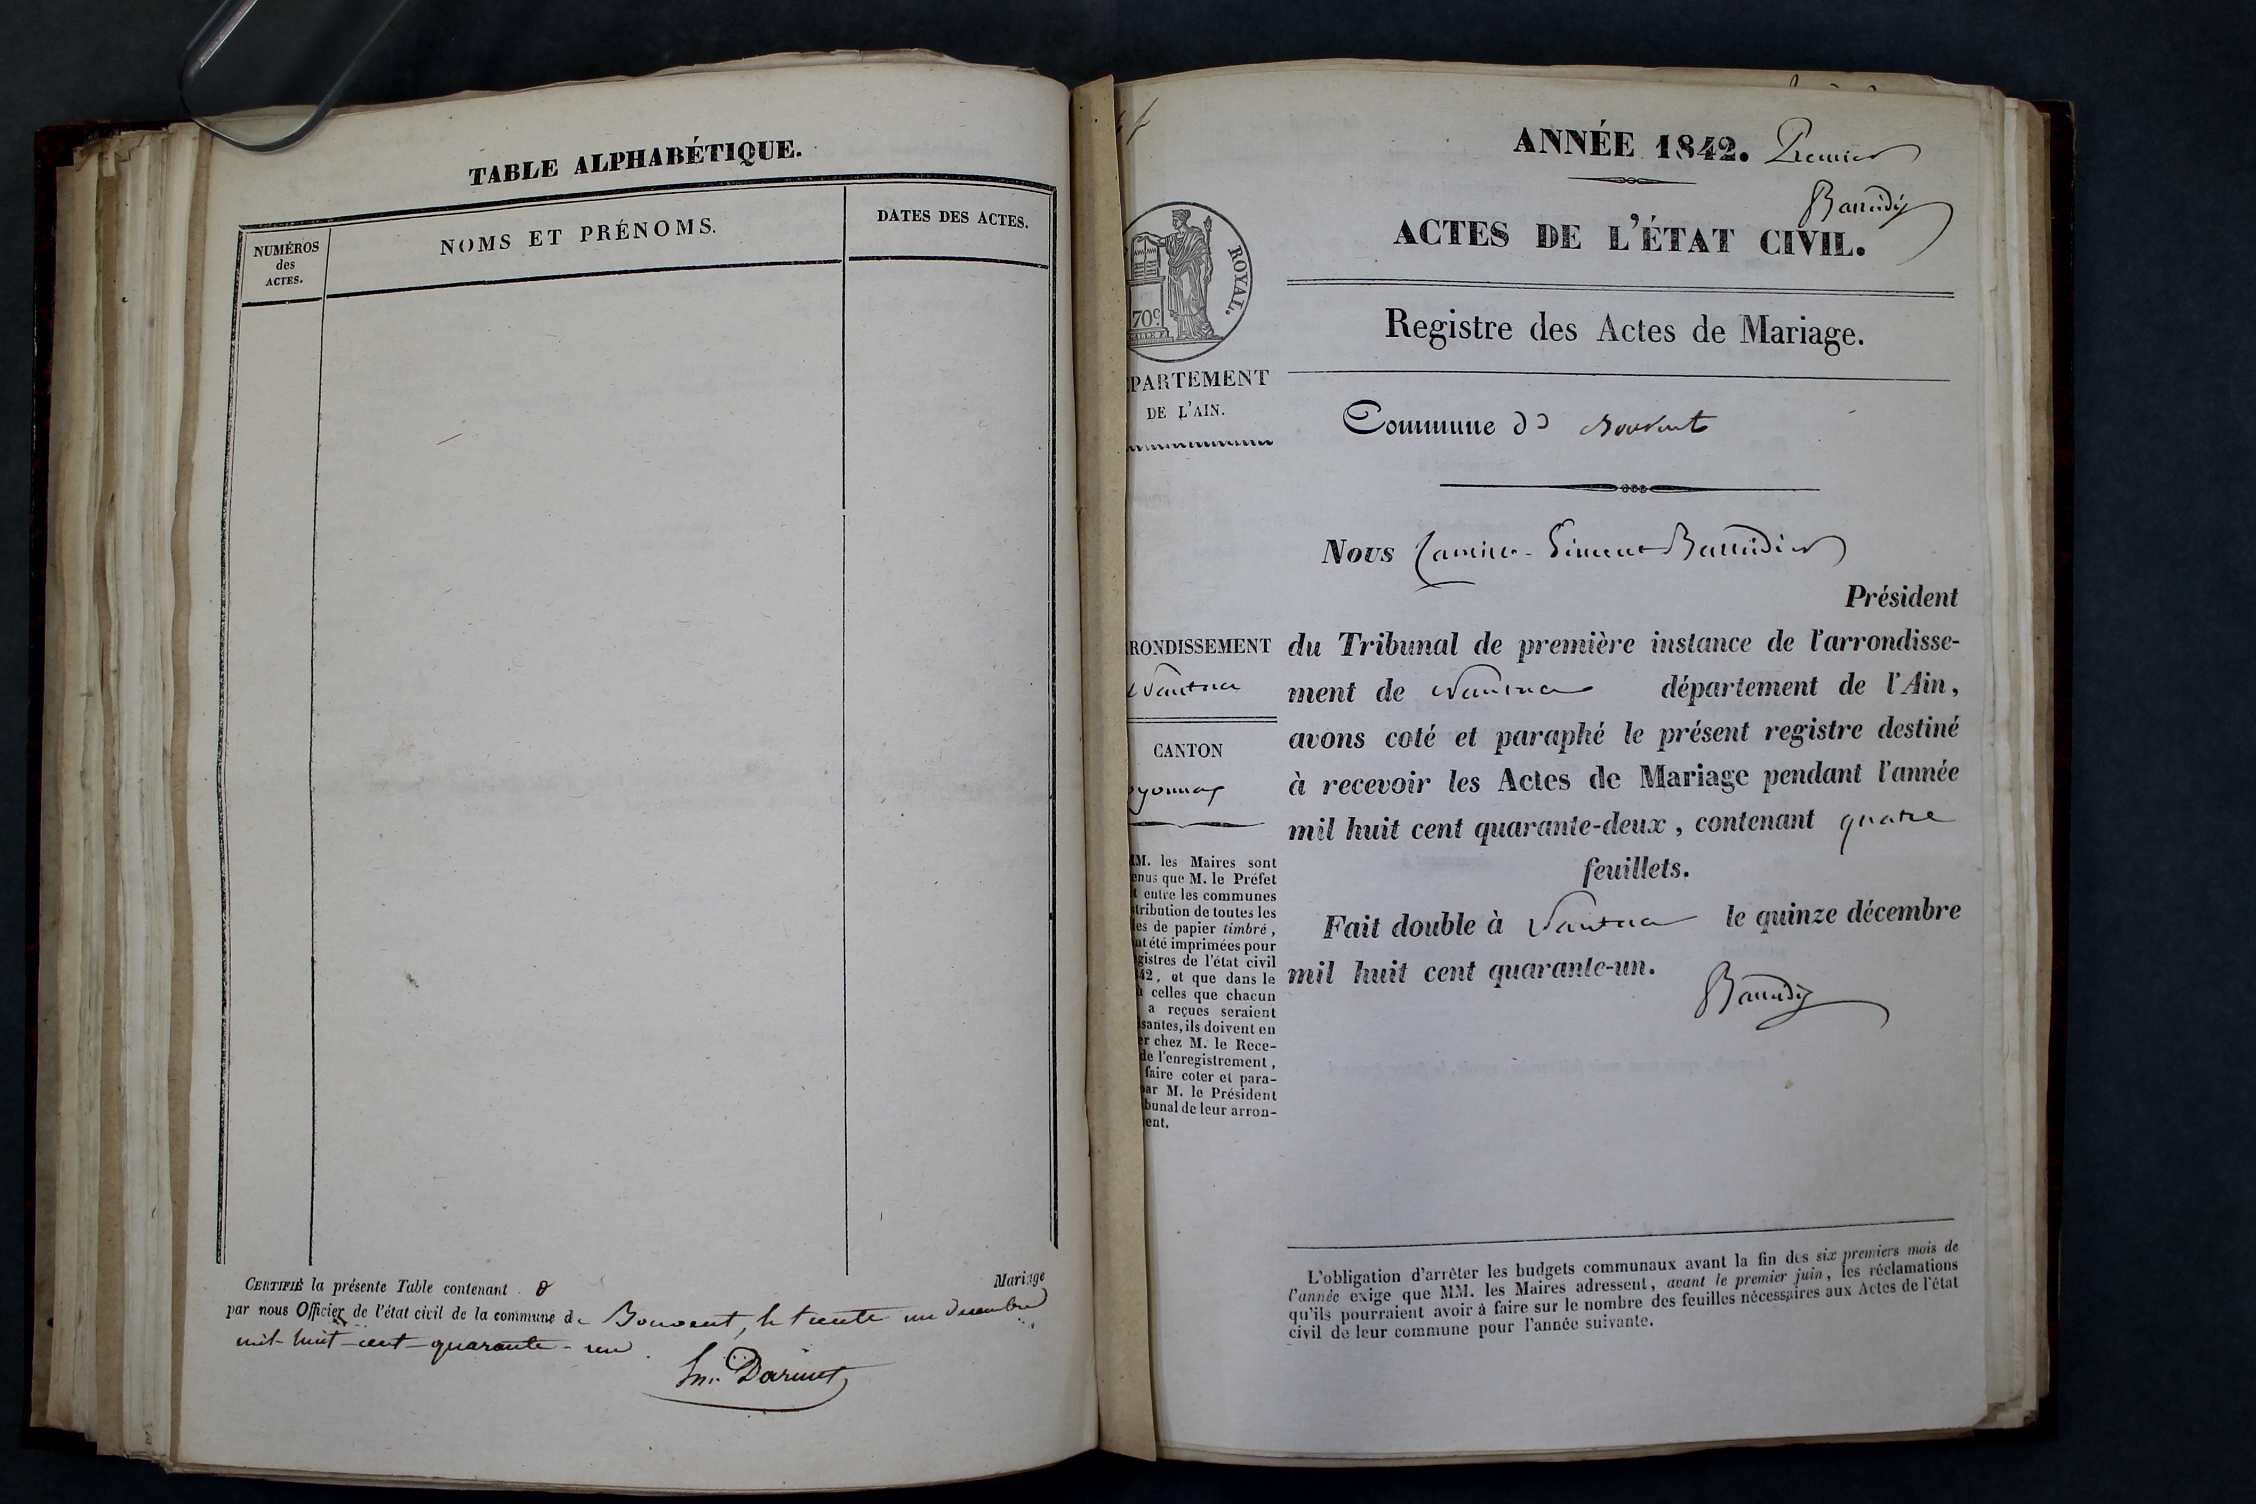 TABLE ALPHABÉTIQUE.
NUMÉROS
des
ACTES.
NOMS ET PRÉNOMS.
DATES DES ACTES.
CERTIFIÉ la présente Table contenant 0 Mariage
par nous Officier de l'état civil de la commune de Bouvent, le trente un decembre
mil huit cent quarante-un.
Darmet
ANNÉE 1842. Premier
ACTES DE L'ÉTAT CIVIL.
Registre des Actes de Mariage.
ROYAL.
70c
PARTEMENT
DE L'AIN.
RONDISSEMENT
Nantua
CANTON
oyonnax
MM. les Maires sont
enus que M. le Préfet
t entre les communes
tribution de toutes les
les de papier timbré,
nt été imprimées pour
gistres de l'état civil
42, et que dans le
celles que chacun
a reçues seraient
santes, ils doivent en
er chez M. le Rece-
de l'enregistrement,
faire coter et para-
par M. le Président
bunal de leur arron-
ent.
Commune de Bouvent
Nous
Président
du Tribunal de première instance de l'arrondisse-
ment de Nantua département de l'Ain,
avons coté et paraphé le présent registre destiné
à recevoir les Actes de Mariage pendant l'année
mil huit cent quarante-deux, contenant quatre
feuillets.
Fait double à Nantua le quinze décembre
mil huit cent quarante-un.
L'obligation d'arrêter les budgets communaux avant la fin des six premiers mois de
l'année exige que MM. les Maires adressent, avant le premier juin, les réclamations
qu'ils pourraient avoir à faire sur le nombre des feuilles nécessaires aux Actes de l'état
civil de leur commune pour l'année suivante.